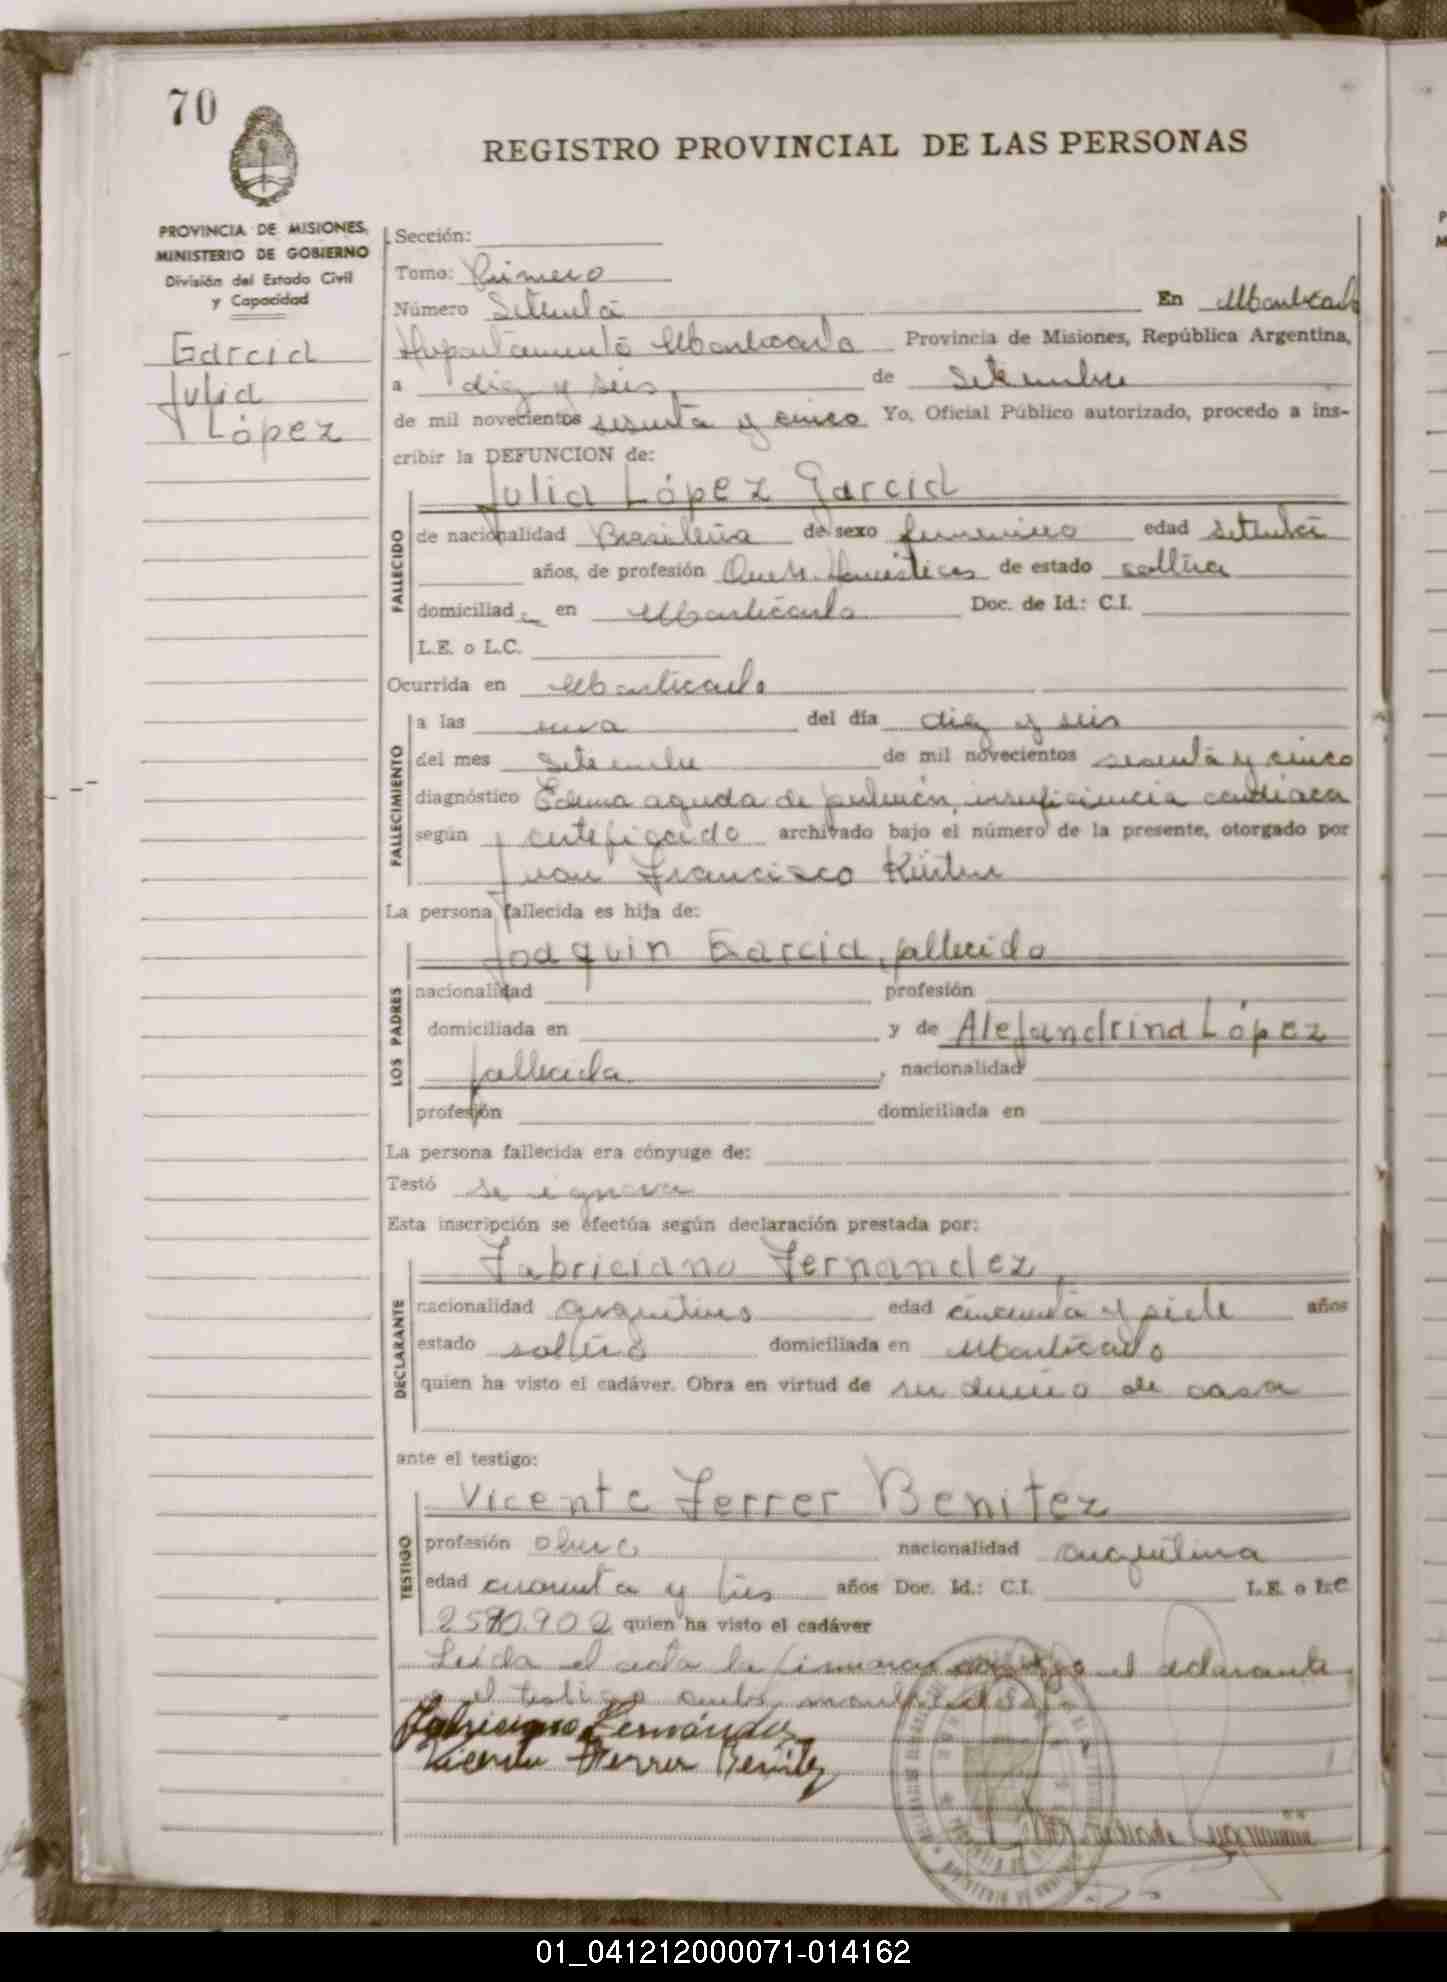 70
REGISTRO PROVINCIAL DE LAS PERSONAS
PROVINCIA DE MISIONES,
MINISTERIO DE GOBIERNO
División del Estado Civil
y Capacidad
Garcia
Julia
López
Sección:
Tomo: Primero
Número Setenta En Montecarlo
Departamento Montecarlo Provincia de Misiones, República Argentina,
a diez y seis de Setiembre
de mil novecientos sesenta y cinco Yo, Oficial Público autorizado, procedo a ins-
cribir la DEFUNCION de:
Julia López Garcia
FALLECIDO
de nacionalidad Brasileña de sexo femenino edad setenta
años, de profesión Queh. Domésticos de estado soltera
domiciliada en Montecarlo Doc. de Id.: C.I.
L.E. o L.C.
Ocurrida en Montecarlo
FALLECIMIENTO
a las una del día diez y seis
del mes Setiembre de mil novecientos sesenta y cinco
diagnóstico Edema aguda de pulmón, insuficiencia cardíaca
según certificado archivado bajo el número de la presente, otorgado por
Juan Francisco
La persona fallecida es hija de:
Joaquin Garcia, fallecido
LOS PADRES
nacionalidad profesión
domiciliada en y de Alejandrina López
fallecida, nacionalidad
profesión domiciliada en
La persona fallecida era cónyuge de:
Testó se ignora
Esta inscripción se efectúa según declaración prestada por:
Fabriciano Fernandez,
DECLARANTE
nacionalidad argentino edad cincuenta y siete años
estado soltero domiciliada en Montecarlo
quien ha visto el cadáver. Obra en virtud de ser dueño de casa
ante el testigo:
Vicente Ferrer Benitez
TESTIGO
profesión obrero nacionalidad argentina
edad cuarenta y tres años Doc. Id.: C.I. L.E. o L.C
quien ha visto el cadáver
Leída el acta la firmaron conmigo el declarante
y el testigo
Fabriciano Fernández
Vicente Ferrer Benitez
01_041212000071-014162